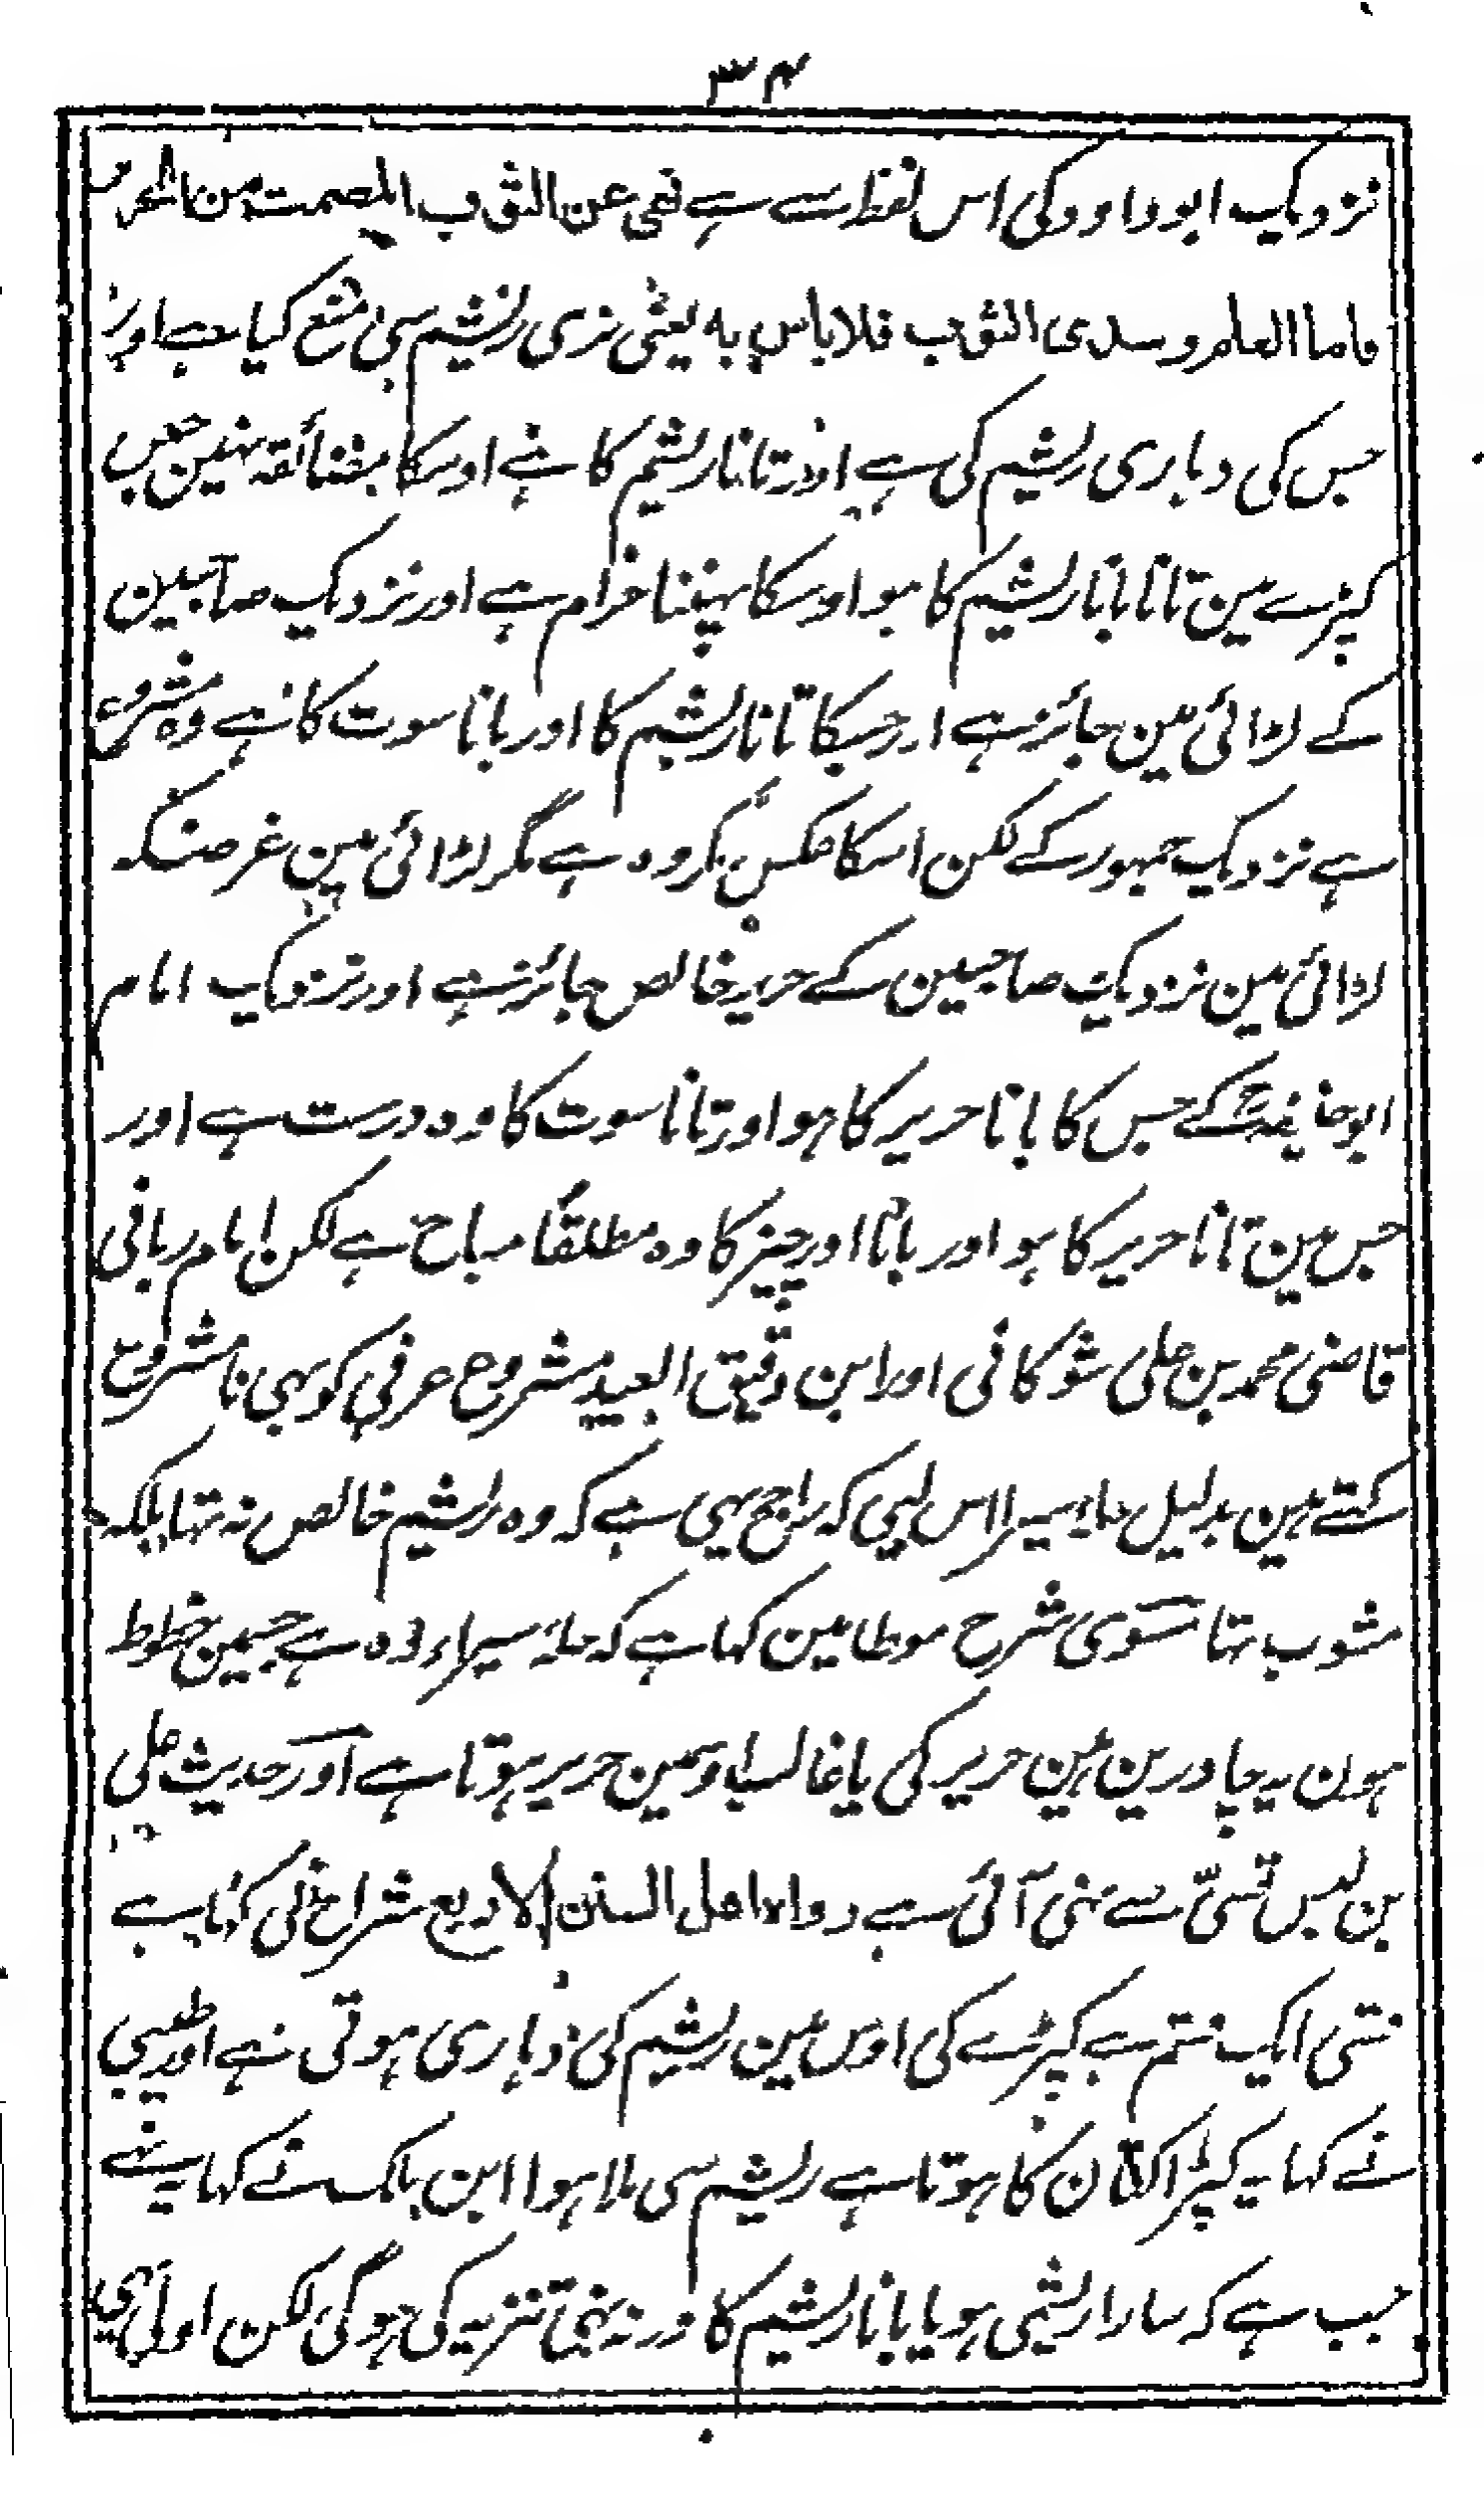 ۳۴
نزدیک ابوداودکی اس لفظ سے ہے نھی عن الثوب المصمت من الحریر
فاما العلم وسدی الثوب فلا باس به یعنی نری ریشم سی منع کیا ہے اور
جس کی دہاری ریشم کی ہے اور تانا ریشم کا ہے اوسکا مضائقہ نہین جس
کپڑے مین تانا بانا ریشم کا ہو اوسکا پہننا حرام ہے اور نزدیک صاحبین
کے لڑائی مین جائز ہے اور جسکا تانا ریشم کا اور بانا سوت کا ہے وہ مشروع
ہے نزدیک جمہور کے لکن اسکا عکس مکروہ ہے مگر لڑائی مین غرضکہ
لڑائی مین نزدیک صاحبین کے حریر خالص جائز ہے اور نزدیک امام
ابوحنیفہؒ کے جس کا بانا حریر کا ہو اور تانا سوت کا وہ درست ہے اور
جس مین تانا حریر کا ہو اور بانا اور چیز کا وہ مطلقًا مباح ہے لکن امام ربانی
قاضی محمد بن علی شوکانی اور ابن دقیق العید مشروع عرفی کو بہی نامشروع
کہتے ہین بدلیل حلہ سیرا اس لیی کہ راجح یہی ہے کہ وہ ریشم خالص نہ تہا بلکہ
مشوب تہا مسوی شرح موطا مین کہا ہے کہ حلہ سیراء وہ ہے جسمین خطوط
ہون یہ چادرین ہین حریر کی یا غالب اوسمین حریر ہوتا ہے اور حدیث علی
بن لبس قسیّ سے نہی آئی ہے رواه اهل السنن الاربع شراح نی کہا ہے
قسی ایک قسم ہے کپڑے کی اوس مین ریشم کی دہاری ہوتی ہے اور طیبی
نے کہا یہ کپڑا کتان کا ہوتا ہے ریشم سی ملا ہوا ابن ملک نے کہا یہ نہے
جب ہے کہ سارا ریشمی ہو یا بانا ریشم کا ورنہ نہی تنزیہ کی ہوگی لکن اولی یہی